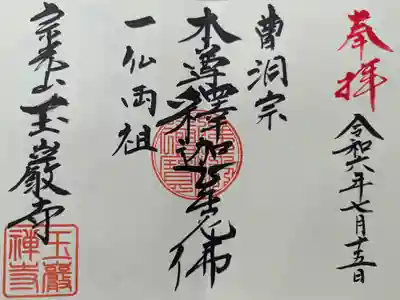 奉拝
令和六年七月十五日
曹洞宗
本尊釋迦牟尼佛
一仏両祖
玉巖寺
玉巖禅寺